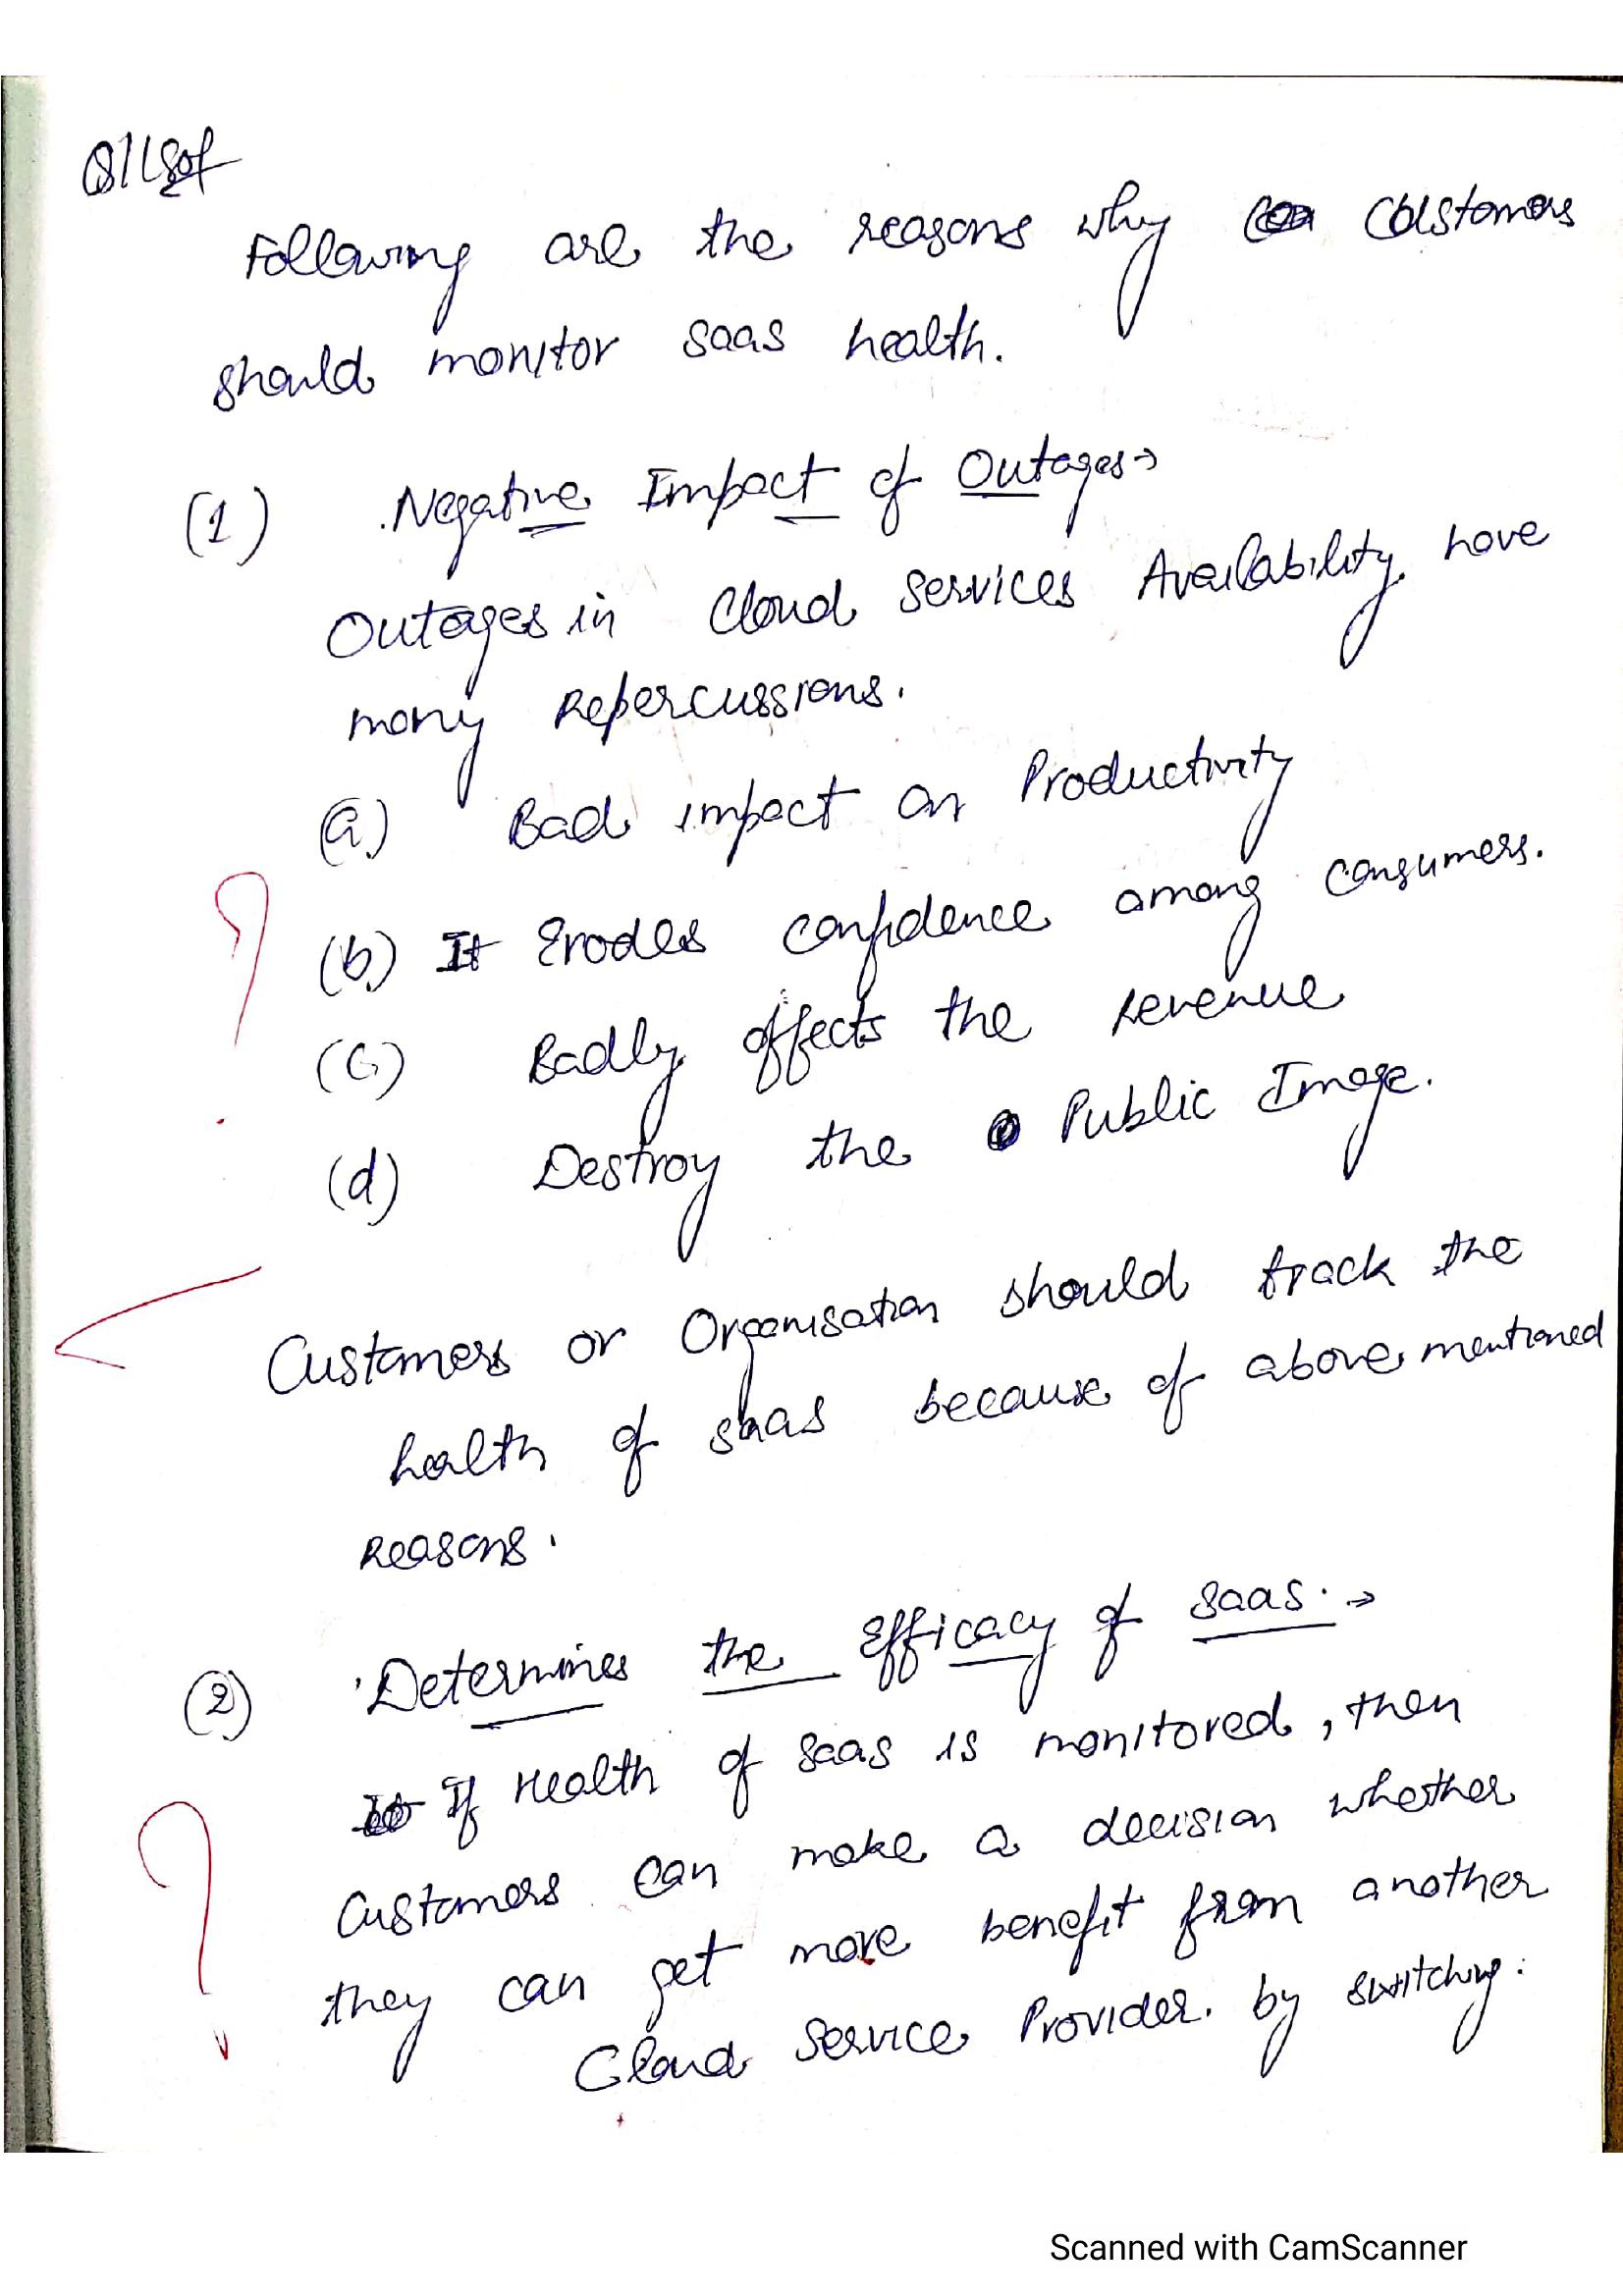 Q1 Sol
Following are the reasons why Customers
should monitor Saas health.
(1) Negative Impact of Outages→
Outages in Cloud Services Availability have
many Repercussions.
(a) Bad impact on Productivity
(b) It Erodes confidence among consumers.
(c) Badly affects the revenue
(d) Destroy the Public Image.
Customers or Organisation should track the
health of saas because of above mentioned
Reasons.
(2) Determines the Efficacy of Saas.→
If Health of Saas is monitored, then
Customers can make a decision whether
they can get more benefit from another
Cloud Service Provider. by switching.
Scanned with CamScanner